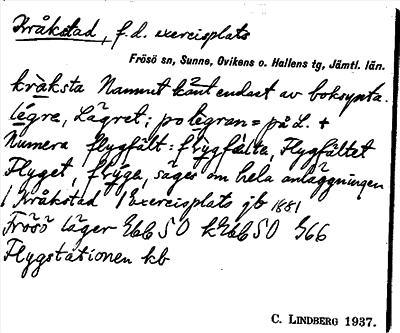 Kråkstad, f.d. exercisplats
Frösö sn, Sunne, Ovikens o. Hallens tg, Jämtl. län.
kràksta Namnet känt endast av boksynta.
légre, Lägret; po legran = på L. +
Numera flygfält: flygfälte, Flygfältet
Flyget, flyge, säges om hela anläggningen
/ Kråkstad / Exercisplats jb 1881
Frösö läger Ebb 50 kEbb 50 G66
Flygstationen kb
C. LINDBERG 1937.